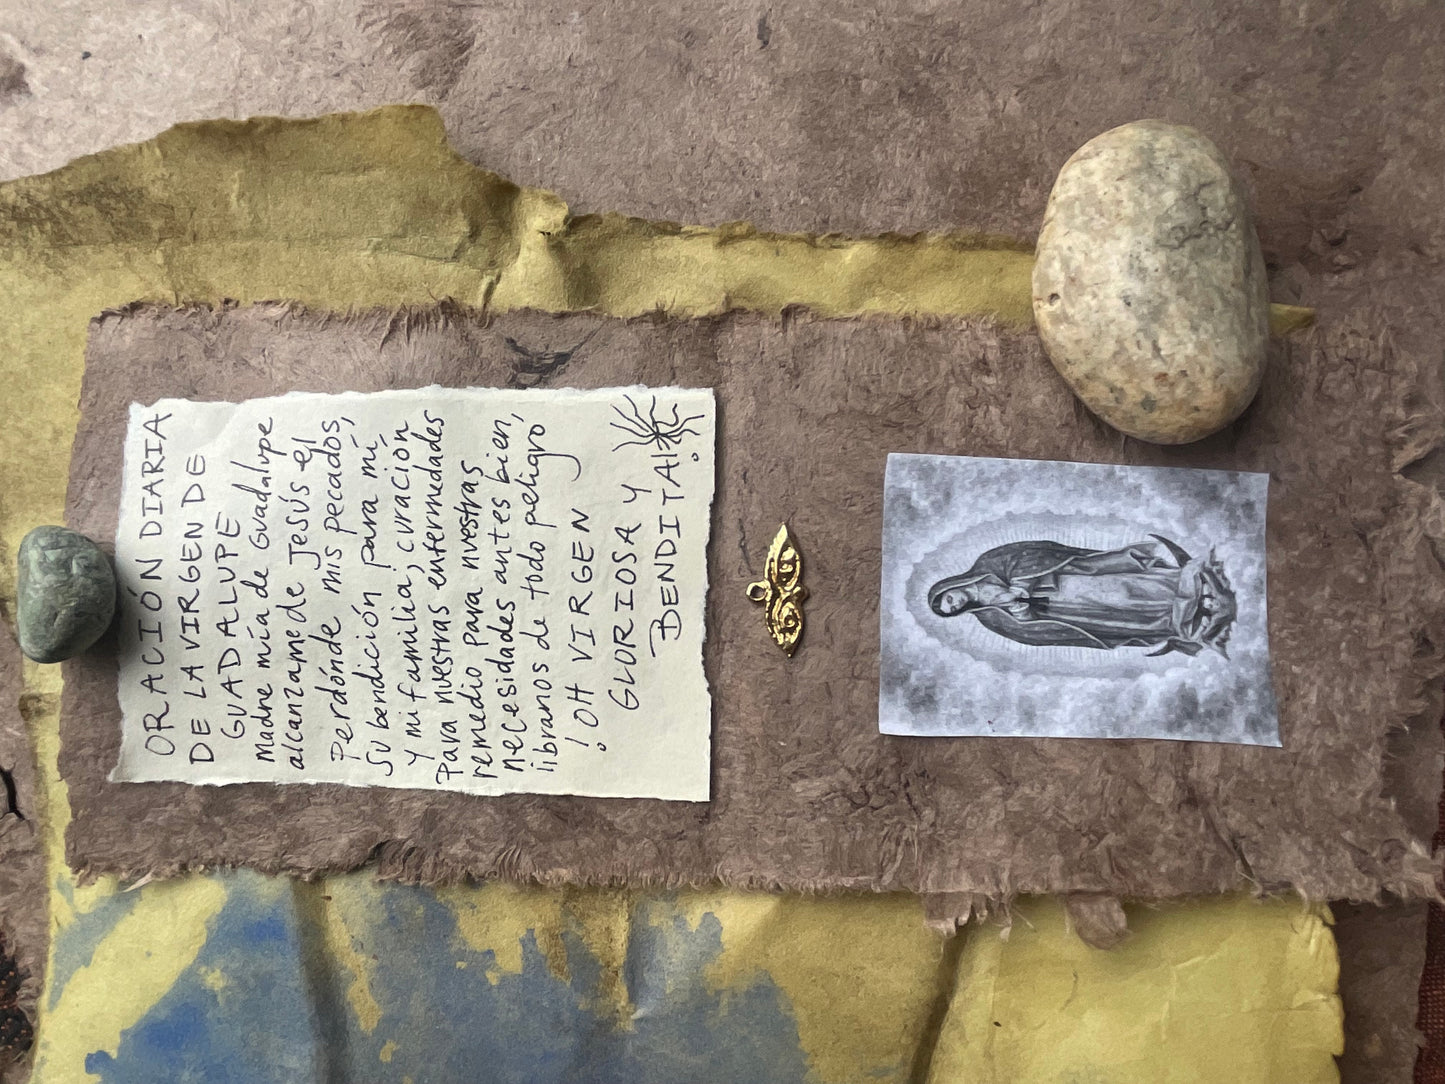 ORACIÓN DIARIA
DE LA VIRGEN DE
GUADALUPE
Madre mía de Guadalupe
alcanzame de Jesús el
Perdónde mis pecados,
Su bendición para mí
y mi familia, curación
Para nuestras enfermedades
remedio para nuestras
necesidades antes bien,
libranos de todo peligro,
¡OH VIRGEN
GLORIOSA Y
BENDITA!